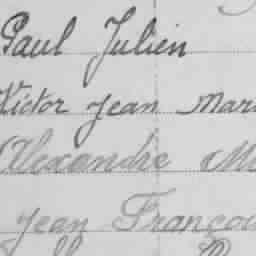 Paul Julien
Victor Jean Mari
Alexandre Ma
Jean Françoi